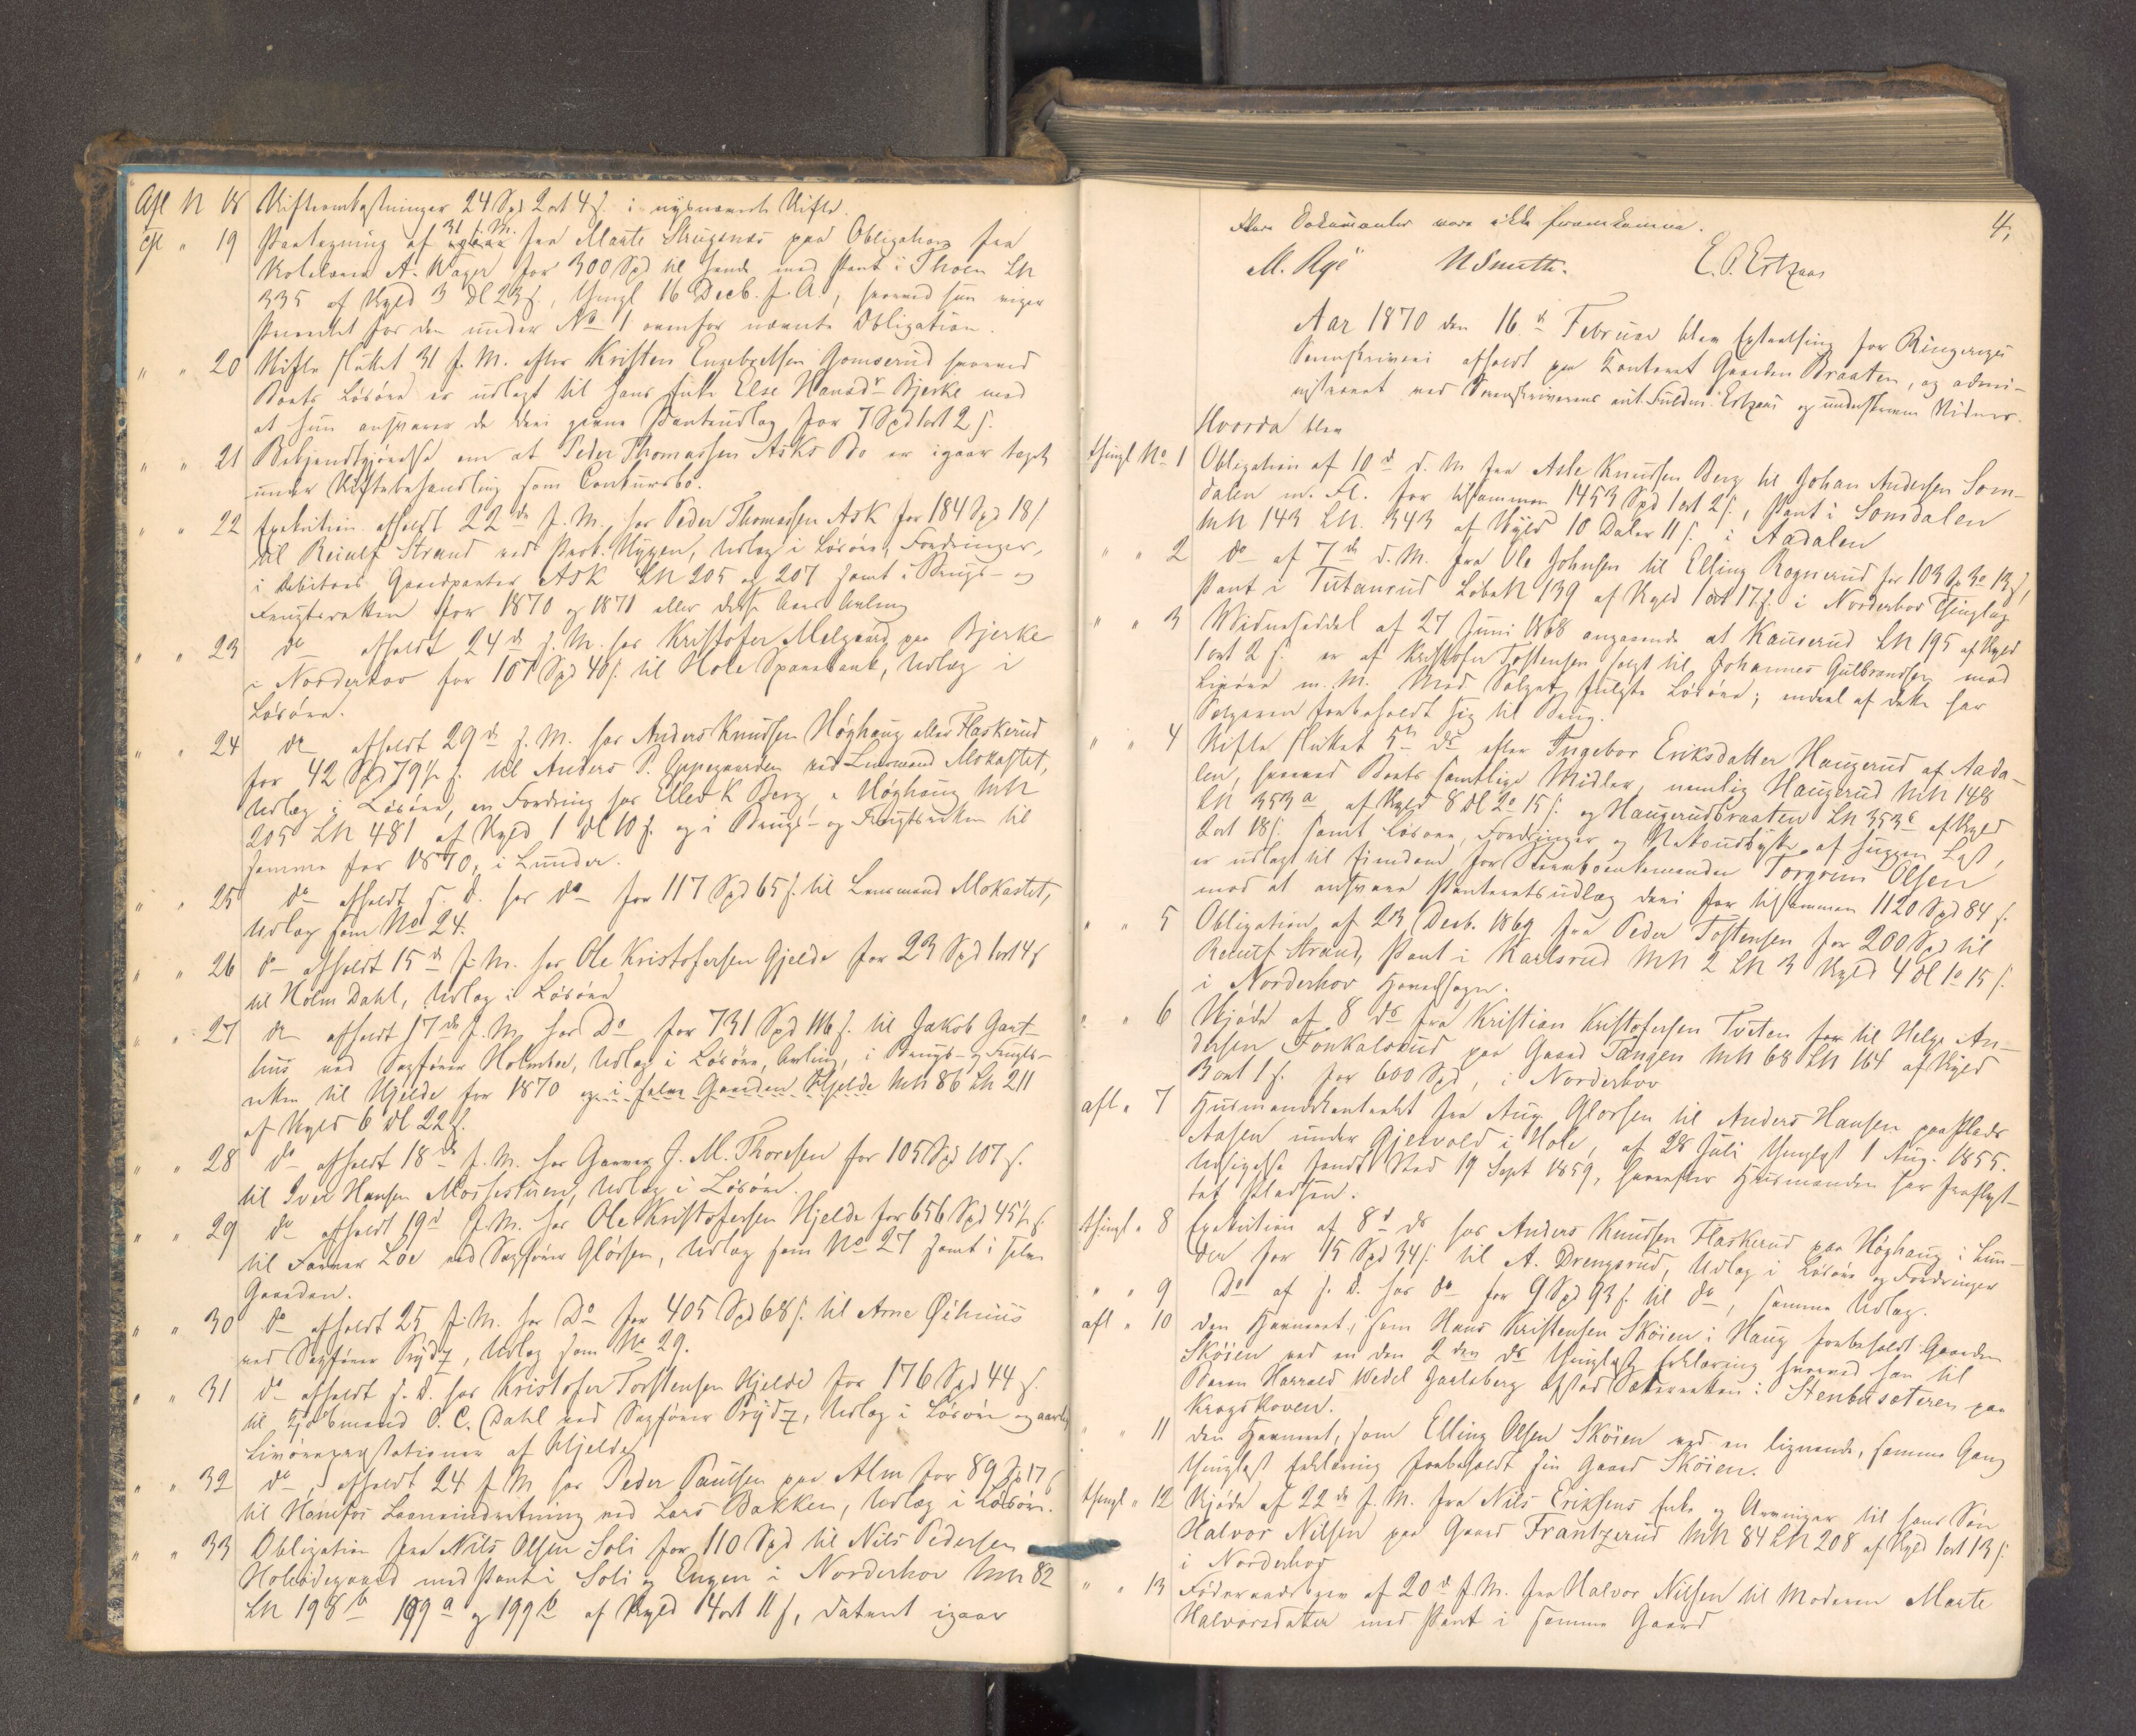 Afl N 18 Skifteomkostninger 24 Spd 2 ort 4 s. i nysnævnte Skifte.
" 19 Paategning af 31 f. M. fra Marte Skugsnæs paa Obligation fra
A. Wager for 300 Spd til hende med Pant i Thoen LN
335 af Skyld 3 Dl 23 s., thingl. 16 Decb. f. A., hvorved hun viger
Prioritet for den under No 1 ovenfor nævnte Obligation.
" " 20 Skifte sluttet 31 f. M. efter Kristen Engebretsen Gomserud hvorved
Boets Løsøre er udlagt til hans Enke Else Hansdr Bjerke mod
at hun ansvarer de deri givne Pantudlæg for 7 Spd 1 ort 2 s.
" " 21 Bekjendtgjørelse om at Peder Thomassen Asks Bo er igaar taget
under Skiftebehandling som Concursbo.
" " 22 Exekution afholdt 22de f. M. hos Peder Thomassen Ask for 184 Spd 18 s
til Reinulf Strand ved Prok. Hygen, Udlæg i Løsøre, Fordringer,
i Debitors Gaardparter Ask LN 205 og 207 samt i Brugs- og
Frugtsretten for 1870 og 1871 eller disse Aars Avling
" " 23 do afholdt 24de f. M. hos Kristofer Melgaard paa Bjerke
i Norderhov for 107 Spd 40 s. til Hole Sparebank, Udlæg i
Løsøre.
" " 24 do afholdt 29de f. M. hos Anders Knudsen Høghaug eller Flaskerud
for 42 Spd 79½ s. til Anders P. Oppegaarden ved Lensmand Mokastet,
Udlæg i Løsøre, en Fordring hos Elled K Berg, Høghaug MN
205 LN 481 af Skyld 1 Dl 10 s. og i Brugs- og Frugtsretten til
samme for 1870, i Lunder.
" " 25 do afholdt s. D. hos do for 117 Spd 65 s. til Lensmand Mokastet,
Udlæg som No 24.
" " 26 do afholdt 15de f. M. hos Ole Kristofersen Gjelde for 23 Spd 1 ort 4 s
til Holm Dahl, Udlæg i Løsøre
" " 27 do afholdt 17de f. M. hos Do for 731 Spd 116 s. til Jakob Gart-
hus ved Sagfører Holmboe, Udlæg i Løsøre, Avling, i Brugs- og Frugts-
retten til Hjelde for 1870 og i selve Gaarden Hjelde MN 86 LN 211
af Skyld 6 Dl 22 s.
" " 28 do afholdt 18de f. M. hos Garver J. M. Thoresen for 105 Spd 107 s.
til Iver Hansen Mosfesturen, Udlæg i Løsøre.
" " 29 do afholdt 19d f. M. hos Ole Kristofersen Hjelde for 656 Spd 45½ s.
til Farver Loe ved Sagfører Glørsen, Udlæg som No 27 samt i selve
Gaarden.
" " 30 do afholdt 25 f. M. hos Do for 405 Spd 68 s. til Arne Øihuus
ved Sagfører Prydz, Udlæg som No 29.
" " 31 do afholdt s. D. hos Kristofer Torstensen Hjelde for 176 Spd 44 s
til Kjøbmand O. C. Dahl ved Sagfører Prydz, Udlæg i Løsøre og aarlig
Livørepræstationer af Hjelde
" " 32 do afholdt 24 f. M. hos Peder Paulsen paa Alm for 89 Sp 17 s
til Honefos Laaneindretning ved Lars Bakken, Udlæg i Løsøre.
" " 33 Obligation fra Nils Olsen Soli for 110 Spd til Nils Pedersen
Holeødegaard med Pant i Soli og Engen i Norderhov MN 82
LN 198b 199a og 199b af Skyld 4 ort 11 s, dateret igaar
4,
Flere Dokumenter vare ikke fremkomne.
M. Rye N Smith. E. O. Erhzaas
Aar 1870 den 16de Februar blev Extrathing for Ringeriges
Sorenskriveri afholdt paa Kontoret Gaarden Braaten, og admi-
nistreret ved Sorenskriverens aut. Fuldm. og underskrevne Vidner.
Hvorda blev
thingl No 1 Obligation af 10de d. M. fra Asle Knudsen Berg til Johan Andersen Som-
dalen m. Fl. for tilsammen 1453 Spd 1 ort 2 s., Pant i Somdalen
MN 143 LN. 343 af Skyld 10 Daler 11 s. i Aadalen
" " 2 do af 7de d. M. fra Ole Johnsen til Elling Rognerud for 103 Sp 3o 13 s,
Pant i Tutanrud LøbeN 139 af Skyld 1 ort 17 s. i Norderhov Thinglag
" " 3 Midnesseddel af 27 Juni 1868 angaaende at Kauserud LN 195 af Skyld
1 ort 2 s. er af Kristofer Tostensen solgt til Johannes Gulbrandsen mod
Livøre m. M. Med Salget fulgte Løsøre; endeel af dette har
Selgeren forbeholdt sig til Brug.
" " 4 Skifte sluttet 5te ds efter Ingebor Eriksdatter Haugerud af Aada-
len, hvorved Boets samtlige Midler, nemlig Haugerud MN 148
LN 353a af Skyld 8 Dl 2o 15 s. og Haugerudbraaten LN 353c af Skyld
2 ort 18 s. samt Løsøre, Fordringer og et Skovstykke af huggen Last,
er udlagt til Eiendom for Stervboenkemanden Torgrim Olsen
mod at ansvare Panteretsudlæg deri for tilsammen 1120 Spd 84 s.
" " 5 Obligation af 23 Decb. 1869 fra Peder Tostensen for 200 Spd til
Reinulf Strand, Pant i Karlsrud MN 2 LN 3 Skyld 4 Dl 1o 15 s.
i Norderhov Hovedsogn.
" " 6 Skjøde af 8 ds fra Kristian Kristofersen Tveten for til Helge An-
dersen Fonkalsrud paa Gaard Tangen MN 68 LN 164 af Skyld
3 ort 1 s. for 600 Spd, i Norderhov
afl " 7 Husmandskontrakt fra Aug. Glorsen til Anders Hansen paa Plads
Aasen under Gjelvold i Hole, af 28 Juli thinglyst 1 Aug. 1855.
Udsigelse fandt Sted 19 Sept 1859, hvorefter Husmanden har fraflyt-
tet Pladsen.
thingl " 8 Exekution af 8d ds hos Anders Knudsen Flaskerud paa Høghaug i Lun-
der for 15 Spd 34 s. til A. Drengsrud, Udlæg i Løsøre og Fordringer
" " 9 Do af s. D. hos do for 9 Spd 93 s. til do, samme Udlæg.
afl " 10 den Havneret, som Hans Kristensen Skøien i Haug forbeholdt Gaarden
Skøien ved en den 2den ds thinglyst Erklæring hvorved han til
Baron Harrald Wedel Jarlsberg afstod Sæterretten i Stenbusæteren paa
Krogskoven.
" " 11 den Havneret, som Elling Olsen Skøien ved en lignende, samme Gang
thinglyst Erklæring forbeholdt sin Gaard Skøien.
thingl " 12 Skjøde af 22de f. M. fra Nils Eriksens Enke og Arvinger til hans Søn
Halvor Nilsen paa Gaard Frantzerud MN 84 LN 208 af Skyld 1 ort 13 s.
i Norderhov
" " 13 Føderaadsbrev af 20de f. M. fra Halvor Nilsen til Moderen Marte
Halvorsdatter med Pant i samme Gaard